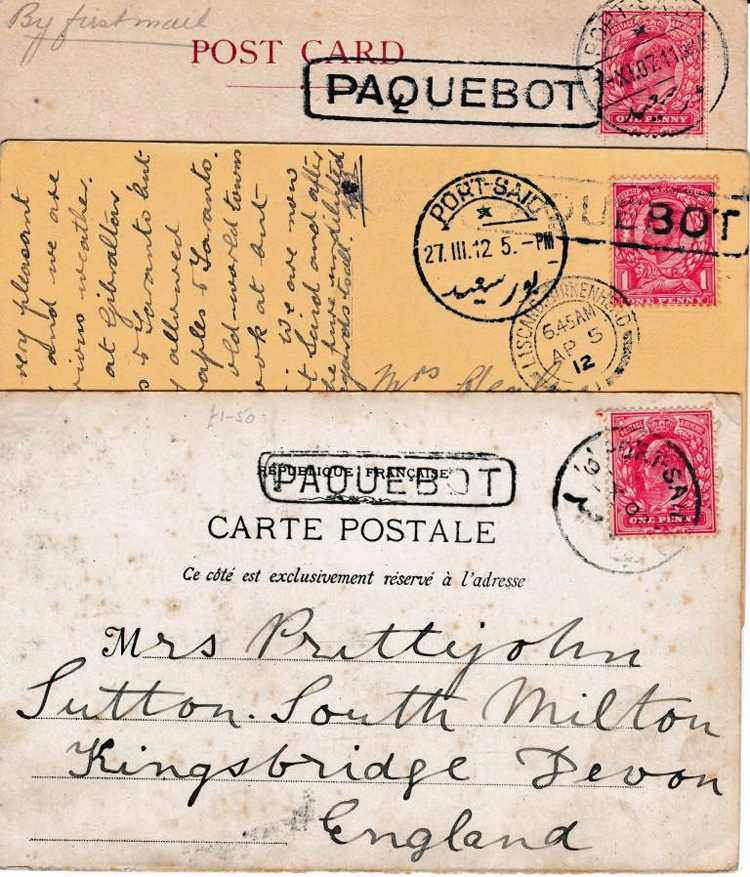 By first mail
POST CARD
PAQUEBOT
PORT-SAID
XI.07.11
ONE PENNY
very pleasant
and we are
weather.
at Gibraltar,
& Taranto but
allowed
Naples & Taranto.
old-world towns
look at but
is we are now
Port Said and after
PORT-SAID
27.III.12 5.-PM
بور سعيد
BOT
1 1
ONE PENNY
LISCARD BIRKENHEAD
6.45AM
AP 5
12
Mrs
£1-50
REPUBLIQUE FRANÇAISE
PAQUEBOT
CARTE POSTALE
Ce côté est exclusivement réservé à l'adresse
POSTAGE & REVENUE
ONE PENNY
PORT-SAID
Mrs Prettijohn
Sutton. South Milton
Kingsbridge Devon
England